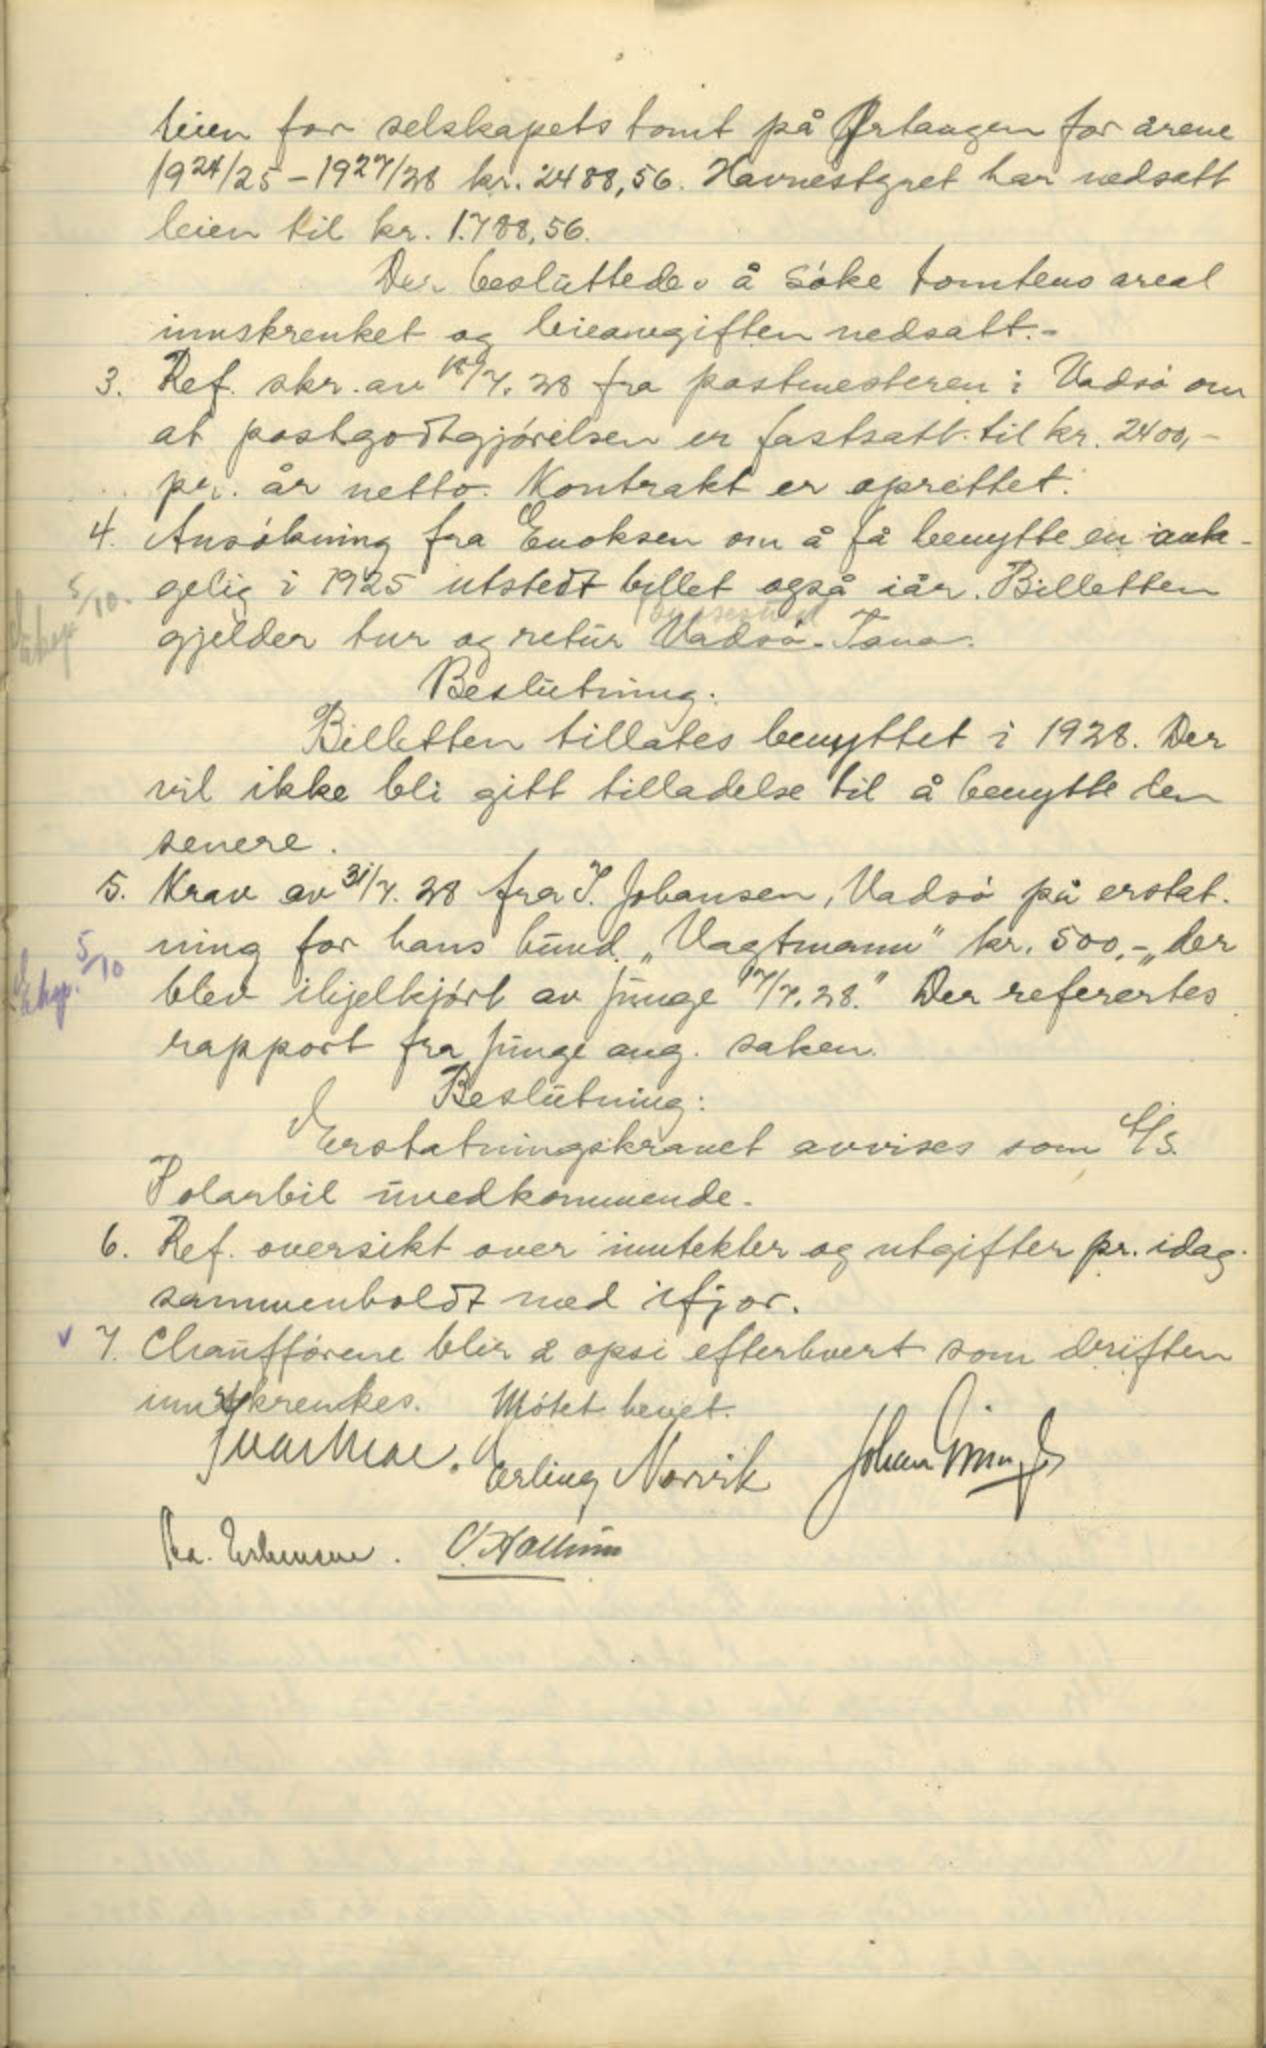 leien for selskapets tomt på Ørtangen for årene
1924/25 – 1927/28 kr. 2488,56. Havnestyret har nedsatt
leien til kr. 1.788,56.
Der besluttedes å søke tomtens areal
innskrenket og leieavgiften nedsatt.-
3. Ref. skr. av 18/7. 28 fra postmesteren i Vadsø om
at postgodtgjørelsen er fastsatt til kr. 2400,-
pr. år netto. Kontrakt er oprettet.
4. Ansøkning fra Enoksen om å få benytte en
gelig i 1925 utstedt billet også iår. Billetten
5/10.
gjelder tur og retur Vadsø - Tana.
Beslutning:
Billetten tillates benyttet i 1928. Der
vil ikke bli gitt tilladelse til å benytte den
senere.
5. Krav av 31/7. 28 fra I. Johansen, Vadsø på erstat.
ning for hans hund "Vagtmann" kr. 500,- "der
Eksp. 5/10
blev ihjelkjørt av Junge 17/7.28." Der refertes
rapport fra Junge ang. saken.
Beslutning:
Erstatningskravet avvises som A/S
Polarbil uvedkommende.
6. Ref. oversikt over inntekter og utgifter pr. idag
sammenholdt med ifjor.
v 7. Chaufførene blir å opsi efterhvert som driften
innskrenkes. Møtet hevet.
Erling Norvik Johan Grim